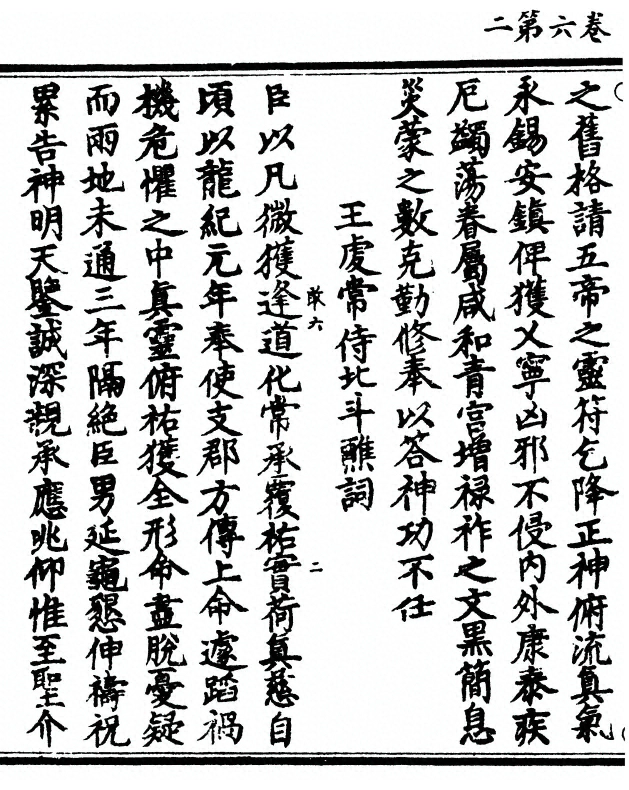 二第六卷
之舊格請五帝之靈符乞降正神俯流真氣
永錫安鎮俾獲乂寧凶邪不侵内外康泰疾
厄蠲蕩眷屬咸和青宫增禄祚之文黑簡息
災蒙之數克勤修奉以答神功不任
王虔常侍北斗醮詞
臣以凡微獲逢道化常承覆祐實荷真慈自
敢六
二
頃以龍紀元年奉使支郡方傳上命遽蹈禍
機危懼之中真靈俯祐獲全形命盡脫憂疑
而兩地未通三年隔絶臣男延龜懇伸禱祝
累告神明天鑒誠深親承應兆仰惟至聖介